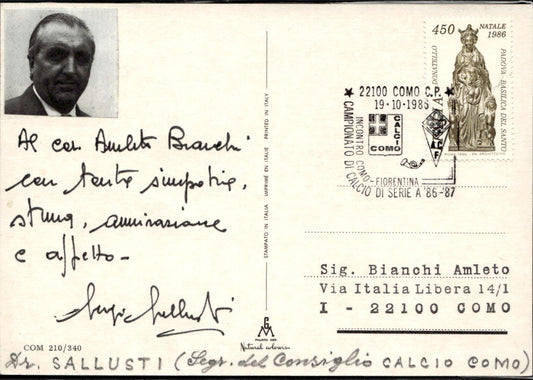 Al caro Amleto Bianchi
con tanta simpatia,
stima, ammirazione
e affetto-
Sergio Sallusti
COM 210/340
STAMPATO IN ITALIA IMPRIMÉ EN ITALIE PRINTED IN ITALY
MILANO
Natural colours
450 NATALE
1986
DONATELLO
PADOVA - BASILICA DEL SANTO
22100 COMO C.P.
19-10-1986
CALCIO
COMO
INCONTRO COMO - FIORENTINA
CAMPIONATO DI CALCIO DI SERIE A '86-'87
Sig. Bianchi Amleto
Via Italia Libera 14/1
I - 22100 COMO
Dr. SALLUSTI (Segr. del Consiglio CALCIO COMO)